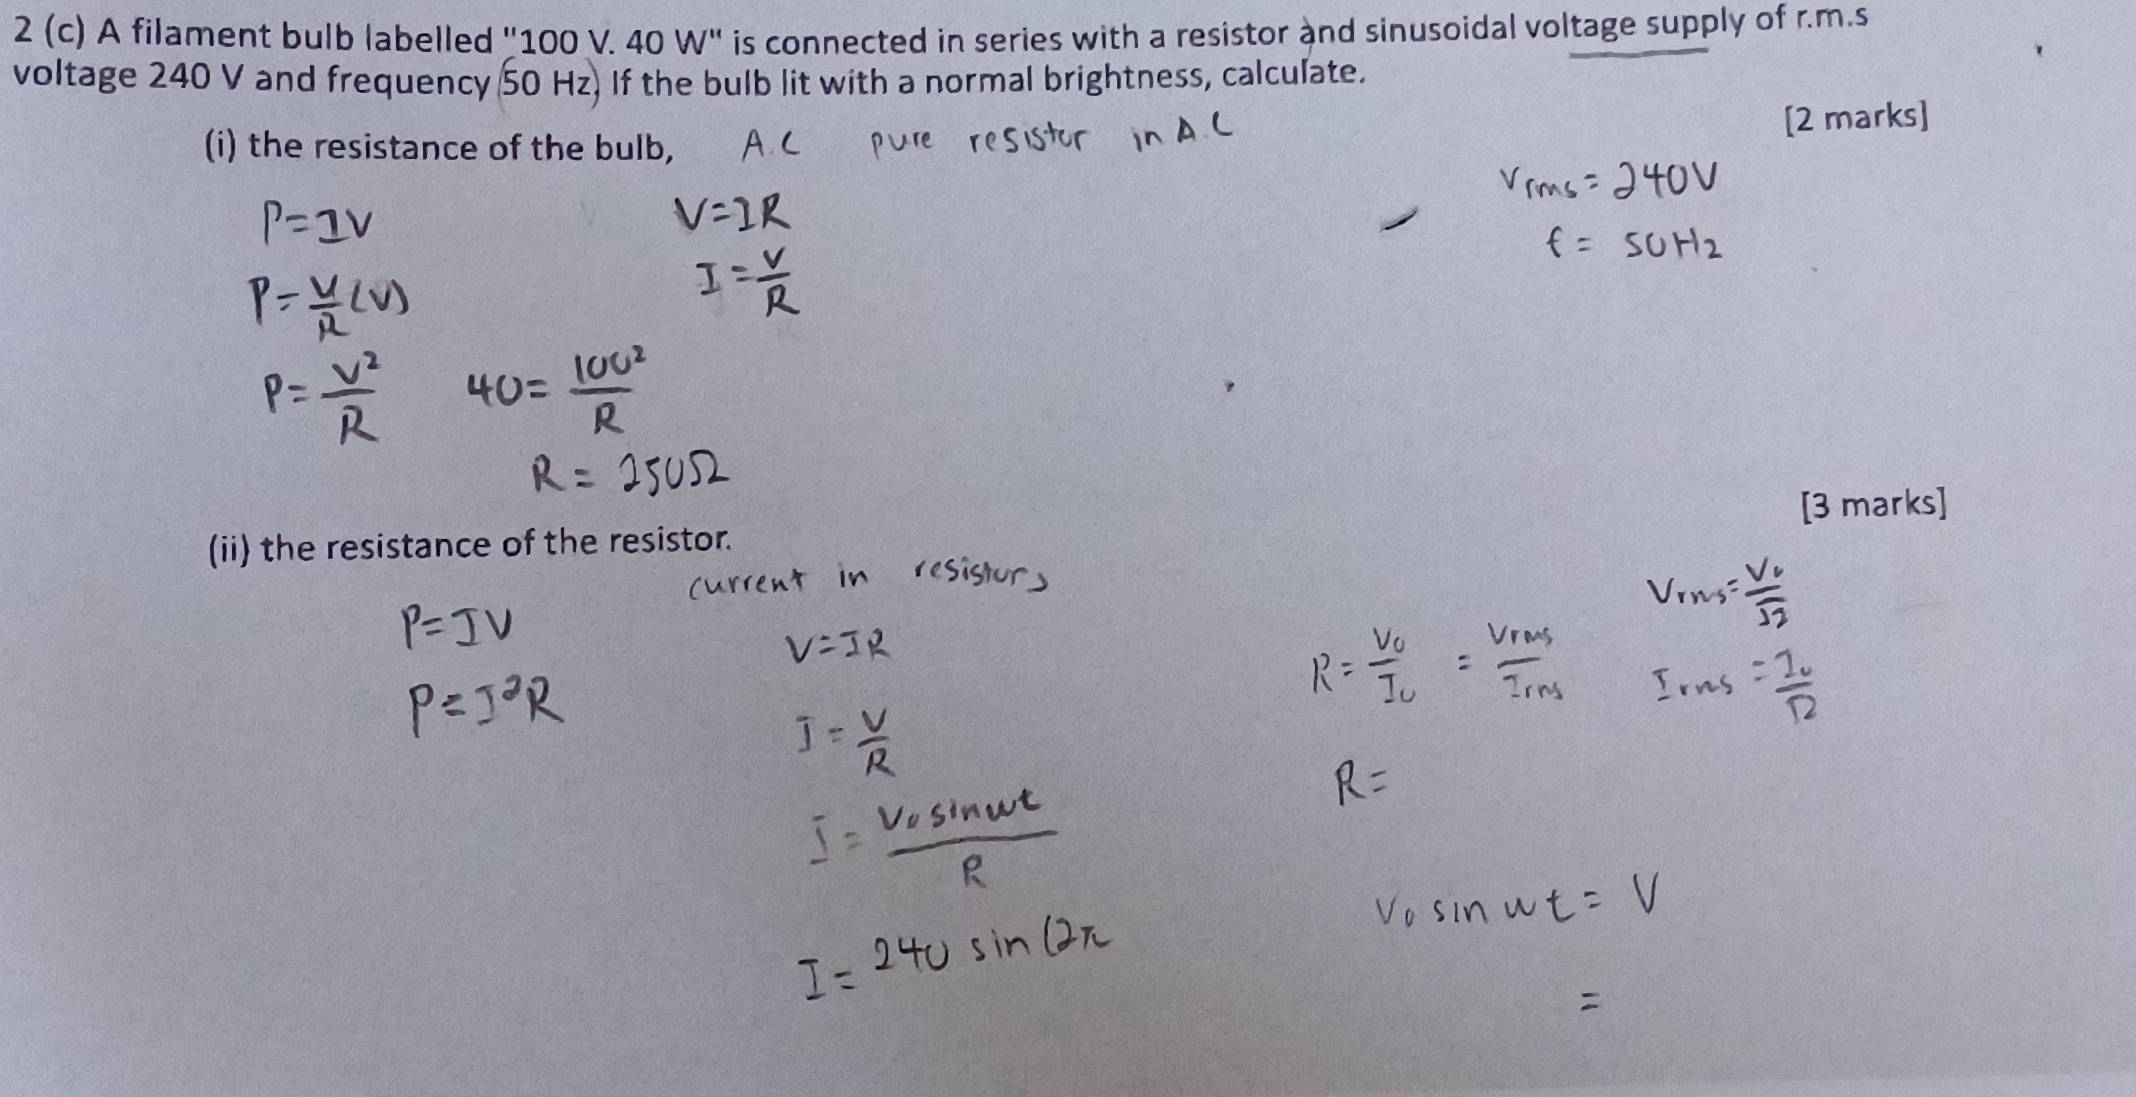 2 (c) A filament bulb labelled "100 V. 40 W" is connected in series with a resistor and sinusoidal voltage supply of r.m.s
voltage 240 V and frequency 50 Hz) If the bulb lit with a normal brightness, calculate.
[2 marks]
(i) the resistance of the bulb, A.C pure resistor in A.C
Vrms = 240V
P=IV V=IR
f = 50Hz
P=V/R (V) I=V/R
P=V²/R 40=100²/R
R= 250Ω
[3 marks]
(ii) the resistance of the resistor.
current in resistors
P=IV V=IR R=V₀/I₀ = Vrms/Irms Vrms=V₀/√2
P=I²R I=V/R Irms=I₀/√2
R=
I=V₀sinωt/R
V₀ sin ωt = V
I= 240 sin (2π
=